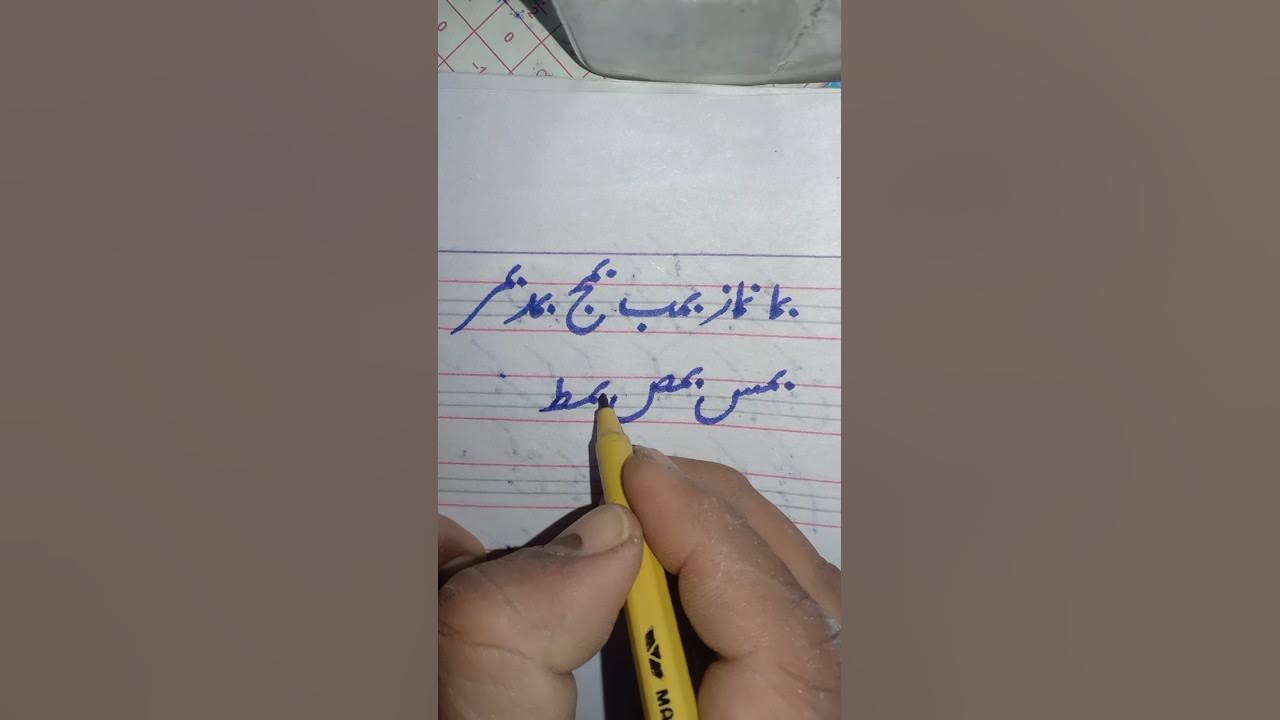 بما نماز بمب بمج بمد بمر
بمس بمص بمط
MA